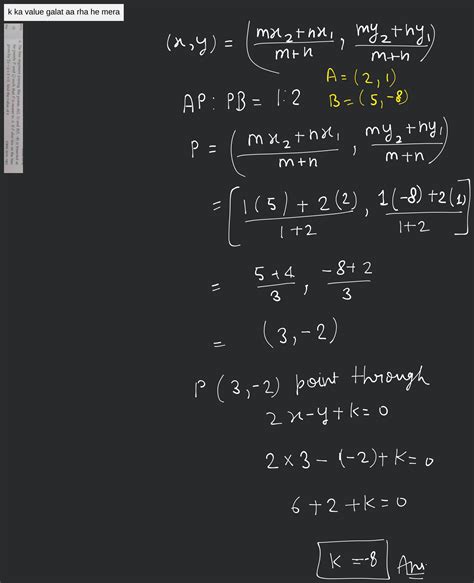 k ka value galat aa rha he mera
(x,y) = (mx₂+nx₁/m+n , my₂+ny₁/m+n)
A = (2, 1)
AP : PB = 1:2
B = (5, -8)
P = (mx₂+nx₁/m+n , my₂+ny₁/m+n)
= [1(5) + 2(2)/1+2 , 1(-8)+2(1)/1+2]
= 5+4/3 , -8+2/3
= (3, -2)
P (3,-2) point through
2x-y+k=0
2×3-(-2)+k=0
6+2+k=0
k = -8 Ans